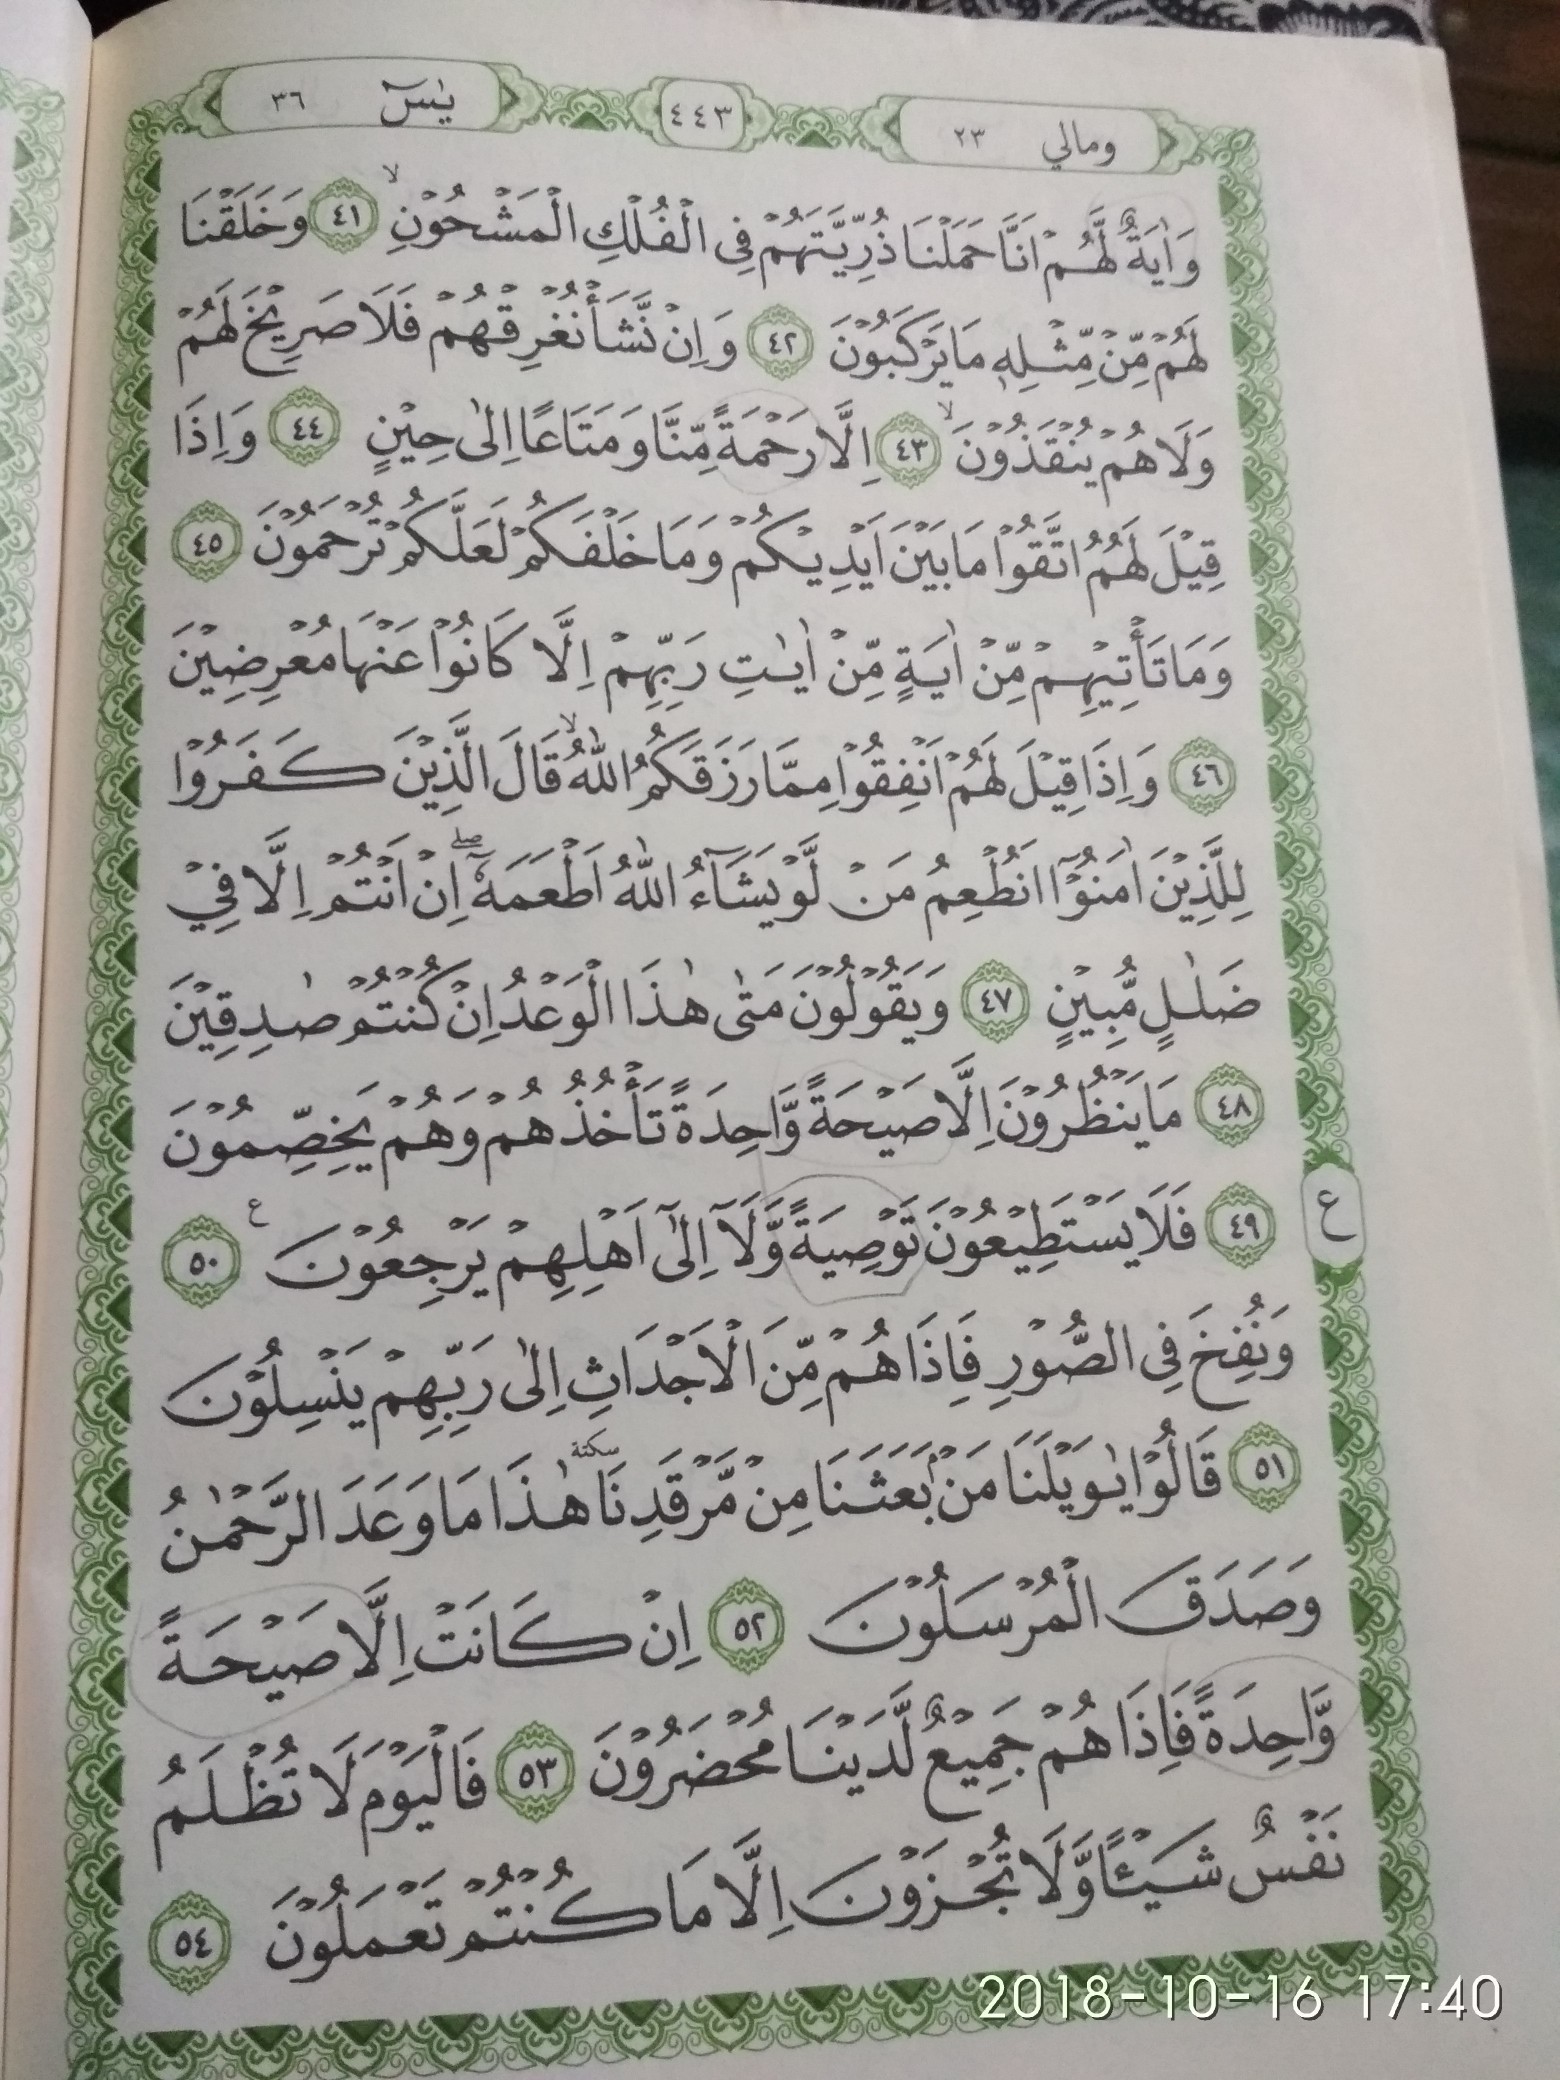 ومالي ٢٣
٤٤٣
يٰسۤ ٣٦
وَاٰيَةٌ لَّهُمْ اَنَّا حَمَلْنَا ذُرِّيَّتَهُمْ فِى الْفُلْكِ الْمَشْحُوْنِۙ ٤١ وَخَلَقْنَا
لَهُمْ مِّنْ مِّثْلِهٖ مَا يَرْكَبُوْنَ ٤٢ وَاِنْ نَّشَأْ نُغْرِقْهُمْ فَلَا صَرِيْخَ لَهُمْ
وَلَا هُمْ يُنْقَذُوْنَۙ ٤٣ اِلَّا رَحْمَةً مِّنَّا وَمَتَاعًا اِلٰى حِيْنٍ ٤٤ وَاِذَا
قِيْلَ لَهُمُ اتَّقُوْا مَا بَيْنَ اَيْدِيْكُمْ وَمَا خَلْفَكُمْ لَعَلَّكُمْ تُرْحَمُوْنَ ٤٥
وَمَا تَأْتِيْهِمْ مِّنْ اٰيَةٍ مِّنْ اٰيٰتِ رَبِّهِمْ اِلَّا كَانُوْا عَنْهَا مُعْرِضِيْنَ
٤٦ وَاِذَا قِيْلَ لَهُمْ اَنْفِقُوْا مِمَّا رَزَقَكُمُ اللّٰهُۙ قَالَ الَّذِيْنَ كَفَرُوْا
لِلَّذِيْنَ اٰمَنُوْٓا اَنُطْعِمُ مَنْ لَّوْ يَشَاۤءُ اللّٰهُ اَطْعَمَهٗٓۖ اِنْ اَنْتُمْ اِلَّا فِيْ
ضَلٰلٍ مُّبِيْنٍ ٤٧ وَيَقُوْلُوْنَ مَتٰى هٰذَا الْوَعْدُ اِنْ كُنْتُمْ صٰدِقِيْنَ
٤٨ مَا يَنْظُرُوْنَ اِلَّا صَيْحَةً وَّاحِدَةً تَأْخُذُهُمْ وَهُمْ يَخِصِّمُوْنَ
ع
٤٩ فَلَا يَسْتَطِيْعُوْنَ تَوْصِيَةً وَّلَآ اِلٰٓى اَهْلِهِمْ يَرْجِعُوْنَ ع ٥٠
وَنُفِخَ فِى الصُّوْرِ فَاِذَا هُمْ مِّنَ الْاَجْدَاثِ اِلٰى رَبِّهِمْ يَنْسِلُوْنَ
٥١ قَالُوْا يٰوَيْلَنَا مَنْۢ بَعَثَنَا مِنْ مَّرْقَدِنَا سكتة هٰذَا مَا وَعَدَ الرَّحْمٰنُ
وَصَدَقَ الْمُرْسَلُوْنَ ٥٢ اِنْ كَانَتْ اِلَّا صَيْحَةً
وَّاحِدَةً فَاِذَا هُمْ جَمِيْعٌ لَّدَيْنَا مُحْضَرُوْنَ ٥٣ فَالْيَوْمَ لَا تُظْلَمُ
نَفْسٌ شَيْـًٔا وَّلَا تُجْزَوْنَ اِلَّا مَا كُنْتُمْ تَعْمَلُوْنَ ٥٤
2018-10-16 17:40